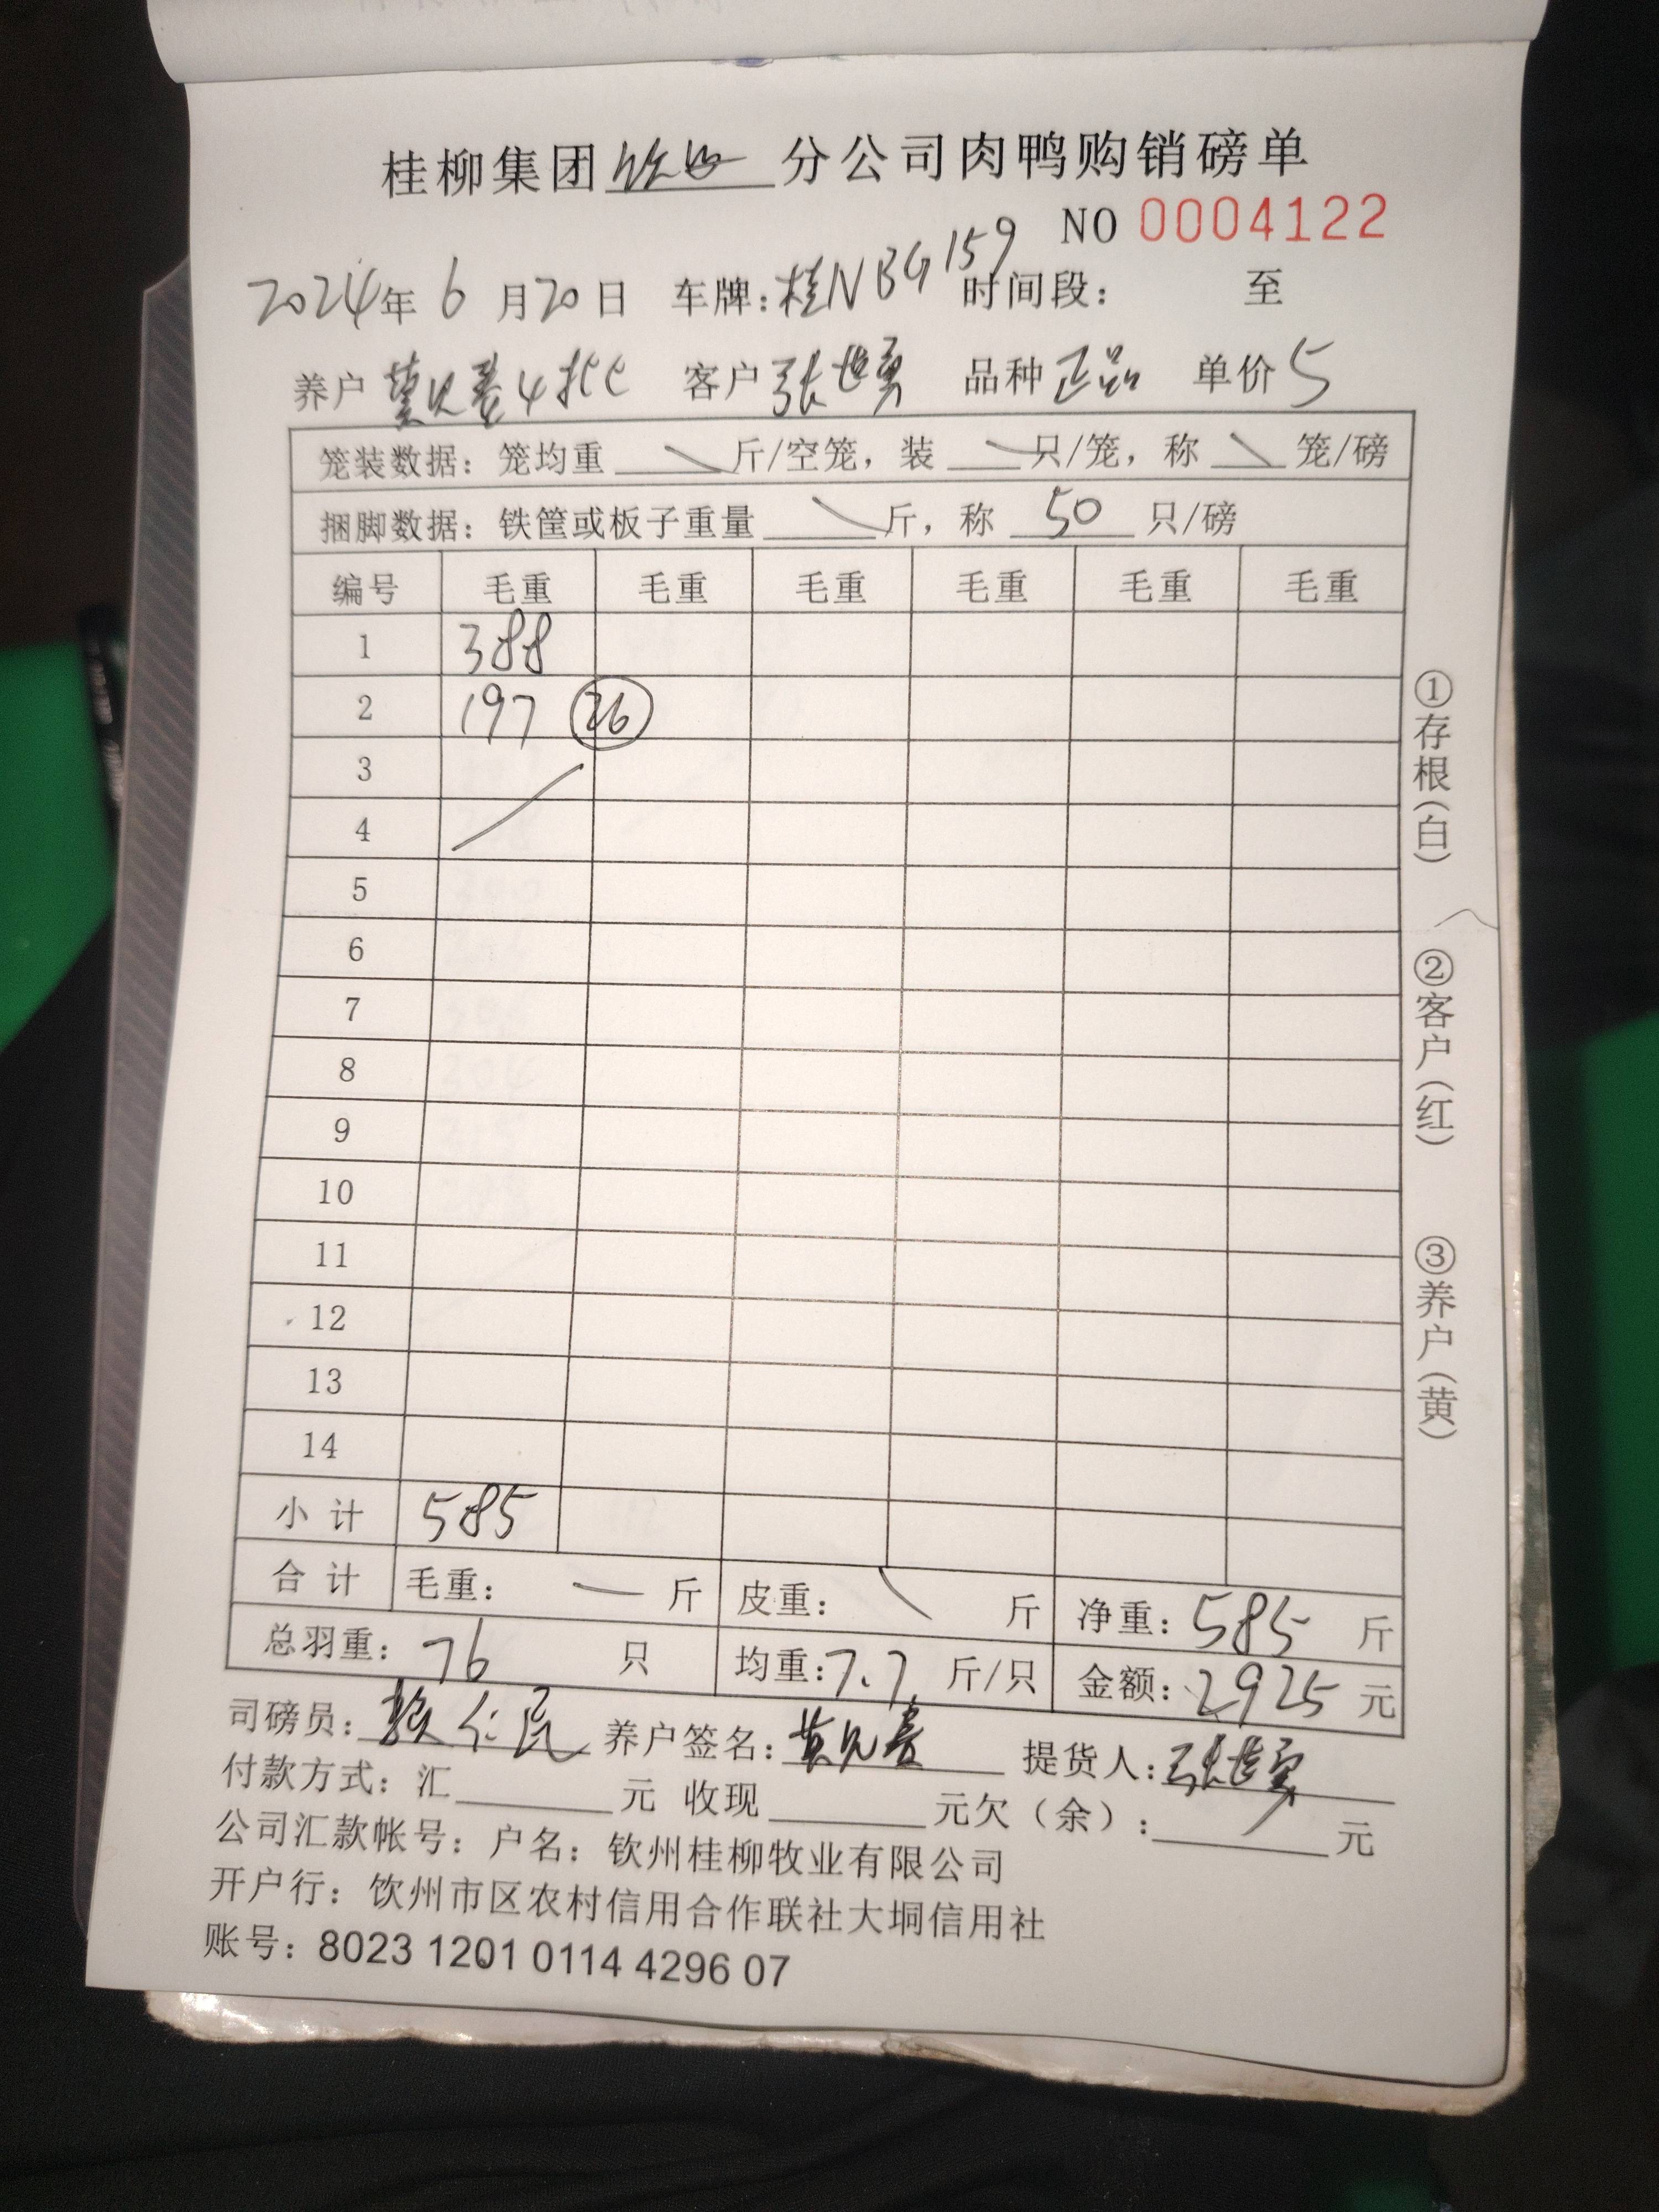 桂柳集团 钦州 分公司肉鸭购销磅单
NO 0004122
2024年 6 月 20 日 车牌:桂NBG159 时间段: 至
养户 4批 客户 张世勇 品种 正品 单价 5
笼装数据: 笼均重 斤/空笼, 装 只/笼, 称 笼/磅
捆脚数据: 铁筐或板子重量 斤, 称 50 只/磅
编号 毛重 毛重 毛重 毛重 毛重 毛重
1 388
2 197 26
3
4
5
6
7
8
9
10
11
12
13
14
小计 585
合计 毛重: 斤 皮重: 斤 净重: 585 斤
总羽重: 76 只 均重: 7.7 斤/只 金额: 2925 元
司磅员: 仁民 养户签名: 提货人: 张世勇
付款方式: 汇 元 收现 元欠(余): 元
公司汇款帐号: 户名: 钦州桂柳牧业有限公司
开户行: 钦州市区农村信用合作联社大垌信用社
账号: 8023 1201 0114 4296 07
①存根(白) ②客户(红) ③养户(黄)